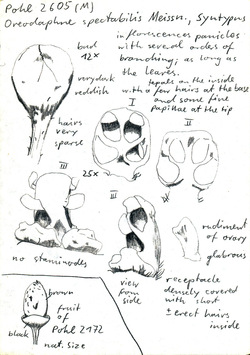 Pohl 2605 (M)
Oreodaphne spectabilis Meissn., Syntypus
inflorescences panicles
with several orders of
branching; as long as
the leaves.
tepals on the inside
with a few hairs at the base
and some fine
papillae at the tip
bud
12x
very dark
reddish
hairs
very
sparse
I
II
III
25x
III
no staminodes
view
from
side
rudiment
of ovary
glabrous
receptacle
densely covered
with short
± erect hairs
inside
brown
fruit
of
Pohl 2172
black
nat. size